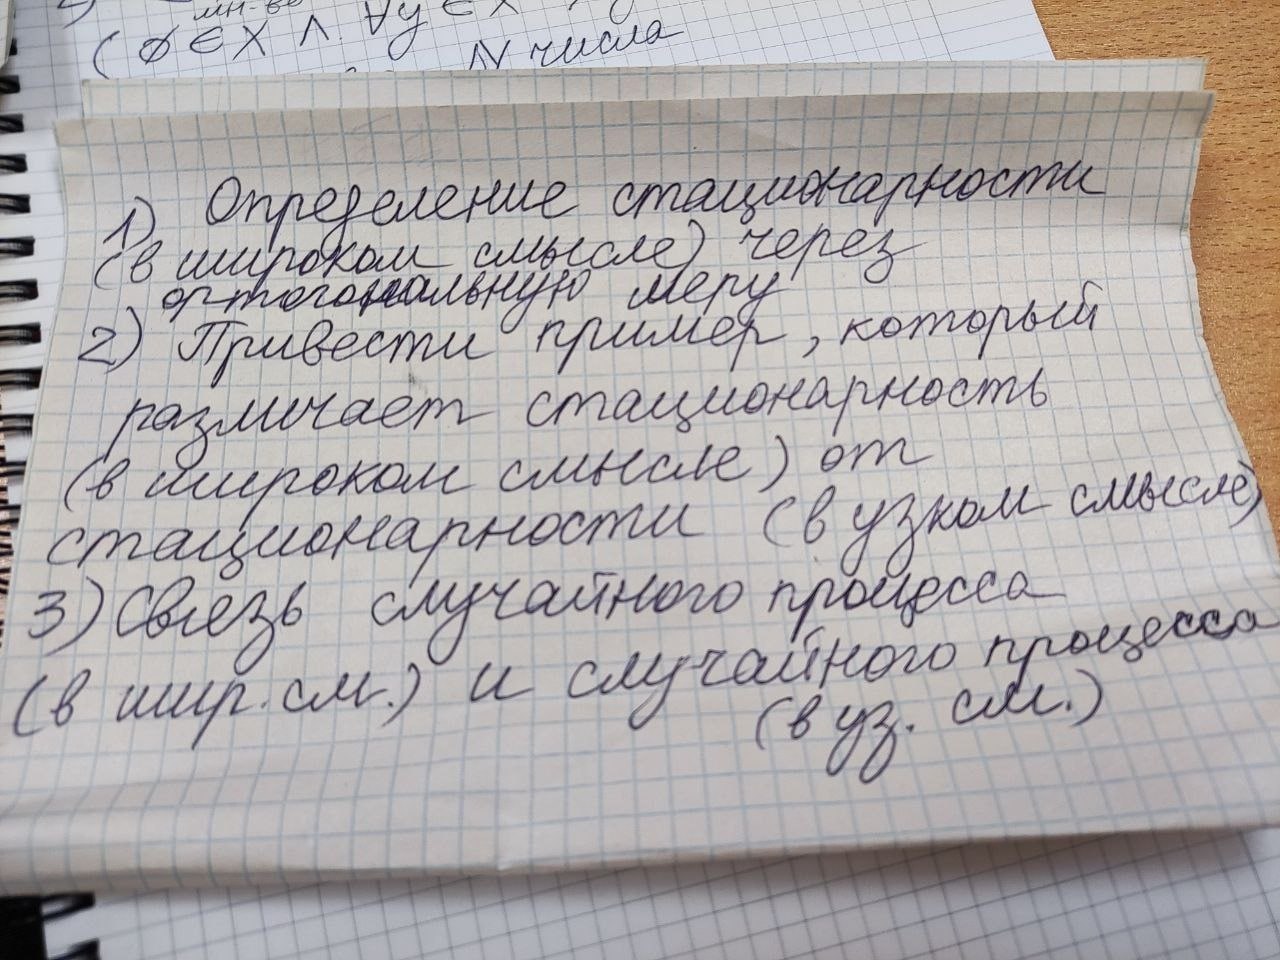 мн-во
( ∅ ∈ X ∧ ∀y ∈ X
N числа
1) Определение стационарности
(в широком смысле) через
ортогональную меру
2) Привести пример, который
различает стационарность
(в широком смысле) от
стационарности (в узком смысле)
3) Связь случайного процесса
(в шир. см.) и случайного процесса
(в уз. см.)